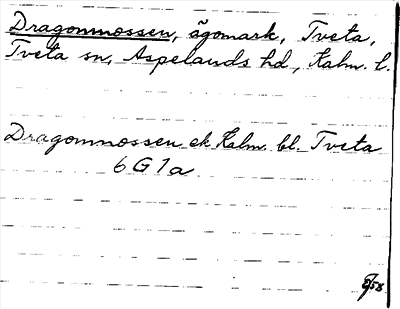 Dragonmossen, ägomark, Tveta,
Tveta sn, Aspelands hd, Kalm. l.
Dragonmossen ek Kalm. bl. Tveta
6G1a